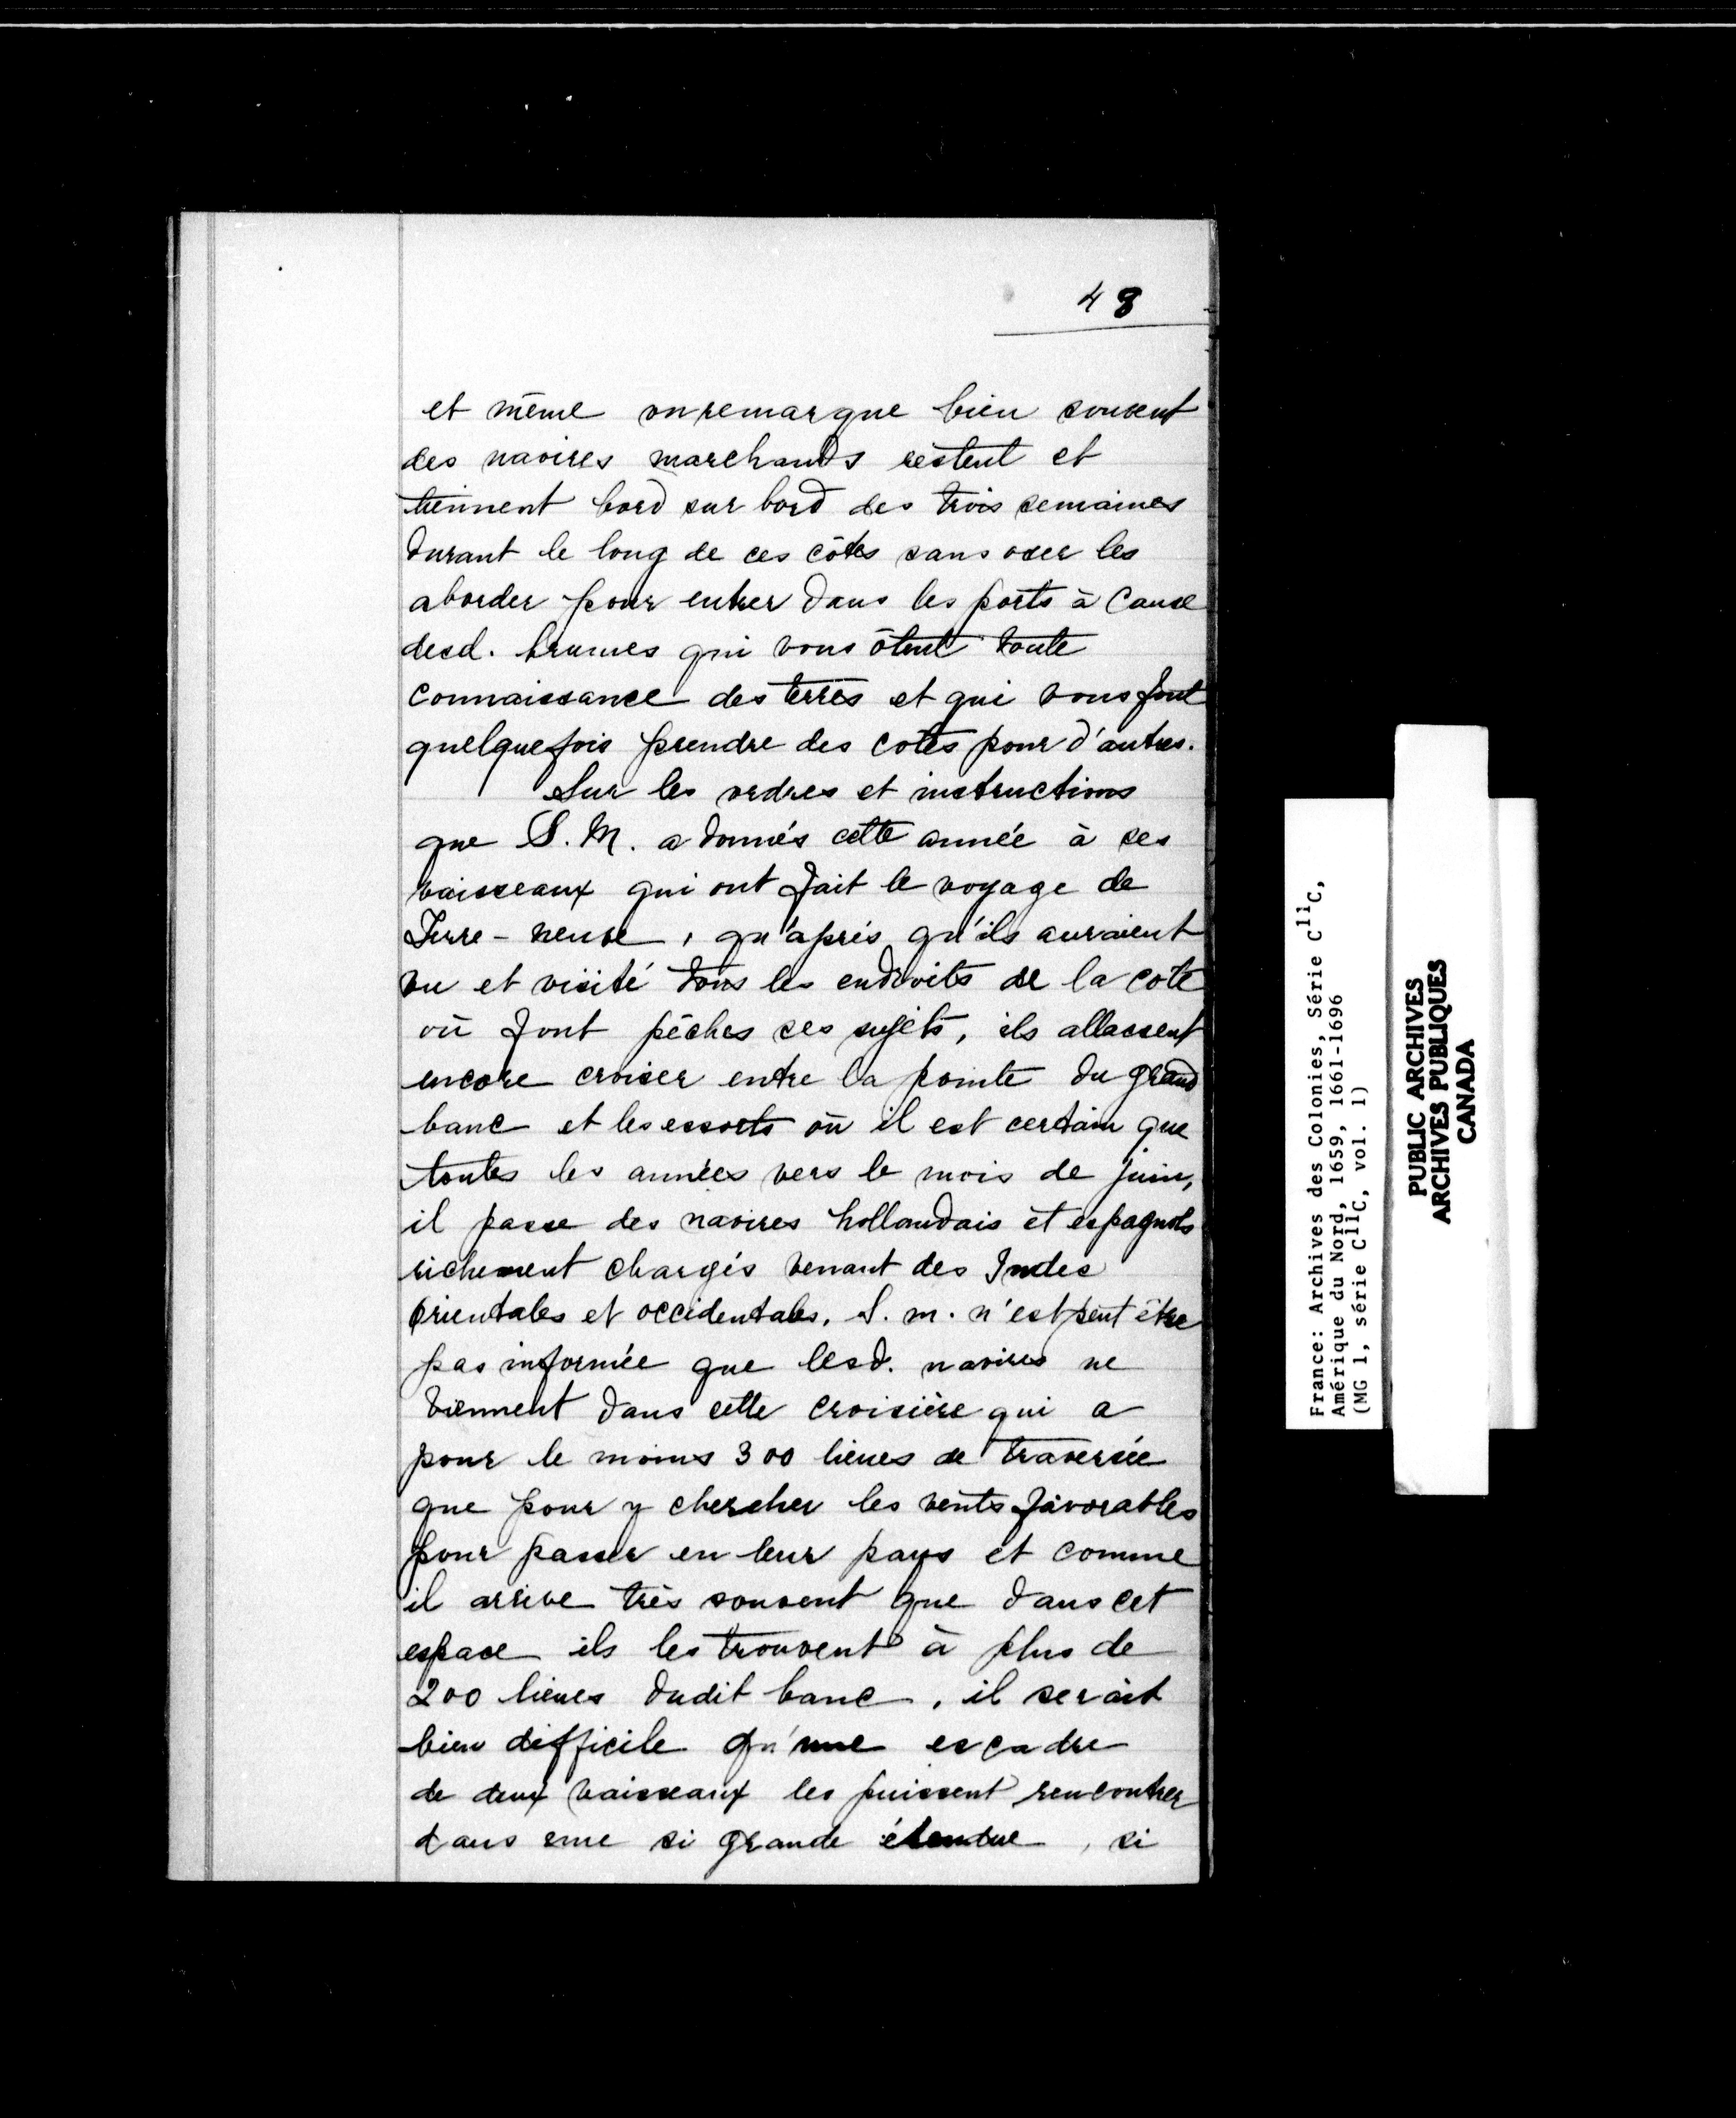 48
et même on remarque bien souvent
des navires marchands restent et
tiennent bord sur bord des trois semaines
durant le long de ces côtes sans oser les
aborder pour entrer dans les ports à cause
desd. brumes qui vous ôtent toute
connaissance des terres et qui vous font
quelquefois prendre des cotes pour d'autres.
Sur les ordres et instructions
que S. M. a donnés cette année à ses
vaisseaux qui ont fait le voyage de
Terre-neuve, qu'après qu'ils auraient
vu et visité tous les endroits de la cote
où font pêches ses sujets, ils allassent
encore croiser entre la pointe du grand
banc et les essorts où il est certain que
toutes les années vers le mois de juin,
il passe des navires hollandais et espagnols
richement chargés venant des Indes
Orientales et occidentales. S. m. n'est peut être
pas informée que lesd. navires ne
viennent dans cette croisière qui a
pour le moins 300 lieues de traversée
que pour y chercher les vents favorables
pour passer en leur pays et comme
il arrive très souvent que dans cet
espace ils les trouvent à plus de
200 lieues dudit banc, il serait
bien difficile qu'une escadre
de deux vaisseaux les puissent rencontrer
dans une si grande étendue, si
France: Archives des Colonies, Série C11C,
Amérique du Nord, 1659, 1661-1696
(MG 1, série C11C, vol. 1)
PUBLIC ARCHIVES
ARCHIVES PUBLIQUES
CANADA